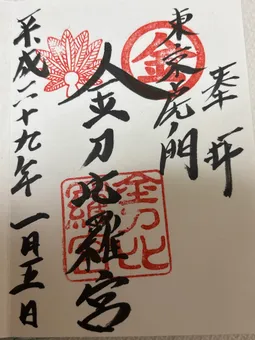 奉拝
東京虎ノ門
金
金刀比羅宮
金刀比羅宮
平成二十九年一月五日